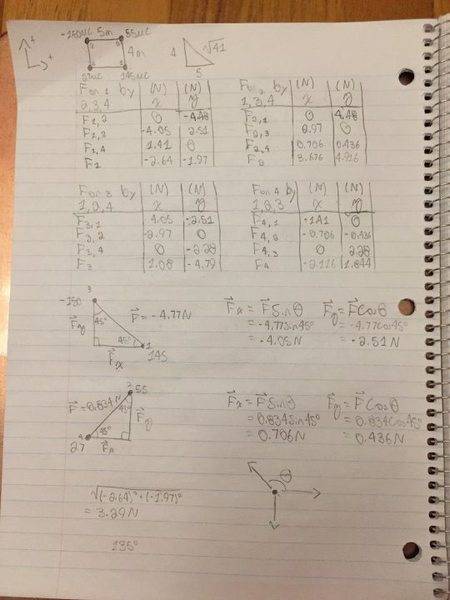 -150μC 5m 55μC
4m
4 √41
27μC 145μC
5
F on 1 by (N) (N)
2,3,4 x y
F1,2 0 -4.48
F1,3 -4.05 2.51
F1,4 1.41 0
F1 -2.64 -1.97
F on 2 by (N) (N)
1,3,4 x y
F2,1 0 4.48
F2,3 2.97 0
F2,4 0.706 0.436
F2 3.676 4.916
F on 3 by (N) (N)
1,2,4 x y
F3,1 4.05 -2.51
F3,2 -2.97 0
F3,4 0 -2.28
F3 1.08 -4.79
F on 4 by (N) (N)
1,2,3 x y
F4,1 -1.41 0
F4,2 -0.706 -0.436
F4,3 0 2.28
F4 -2.116 1.844
3
-150
45°
F = -4.77N
Fy
45°
1
Fx 145
Fx = F Sinθ
= -4.77Sin45°
= -4.05N
Fy = F Cosθ
= -4.77Cos45°
= -2.51N
2 55
F = 0.834N
45°
Fy
4 45°
2.7 Fx
Fx = F Sinθ
= 0.834Sin45°
= 0.706N
Fy = F Cosθ
= 0.834Cos45°
= 0.436N
θ
√(-2.64)² + (-1.97)²
= 3.29N
135°